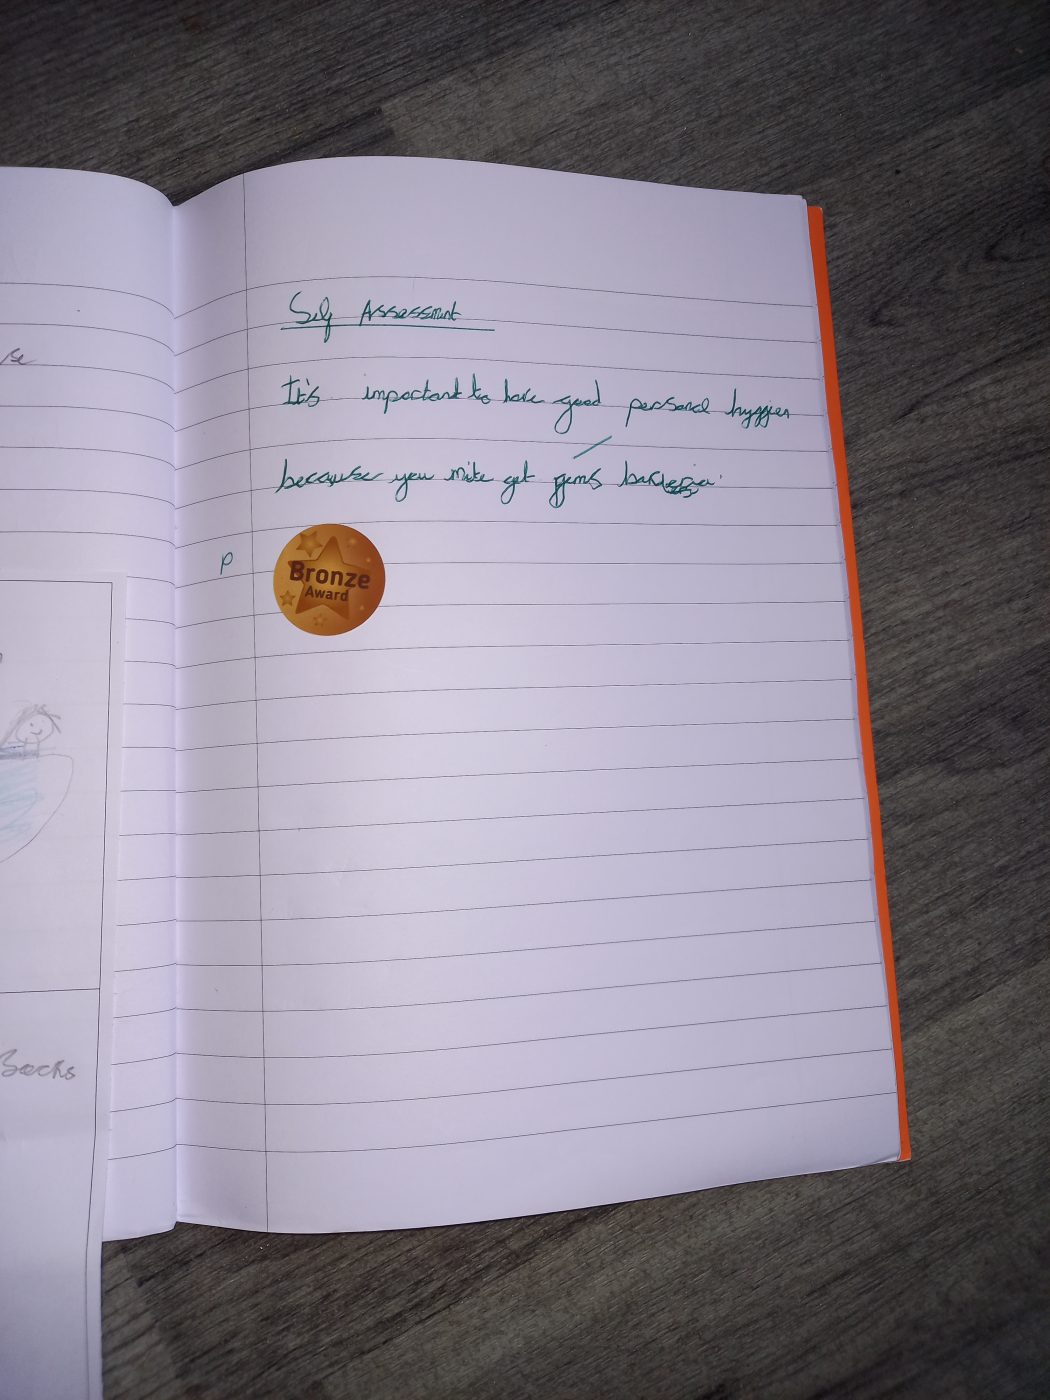 se
Self Assessment
It's important to have good personal hyggien
because you mite get gems
P
Bronze
Award
Socks